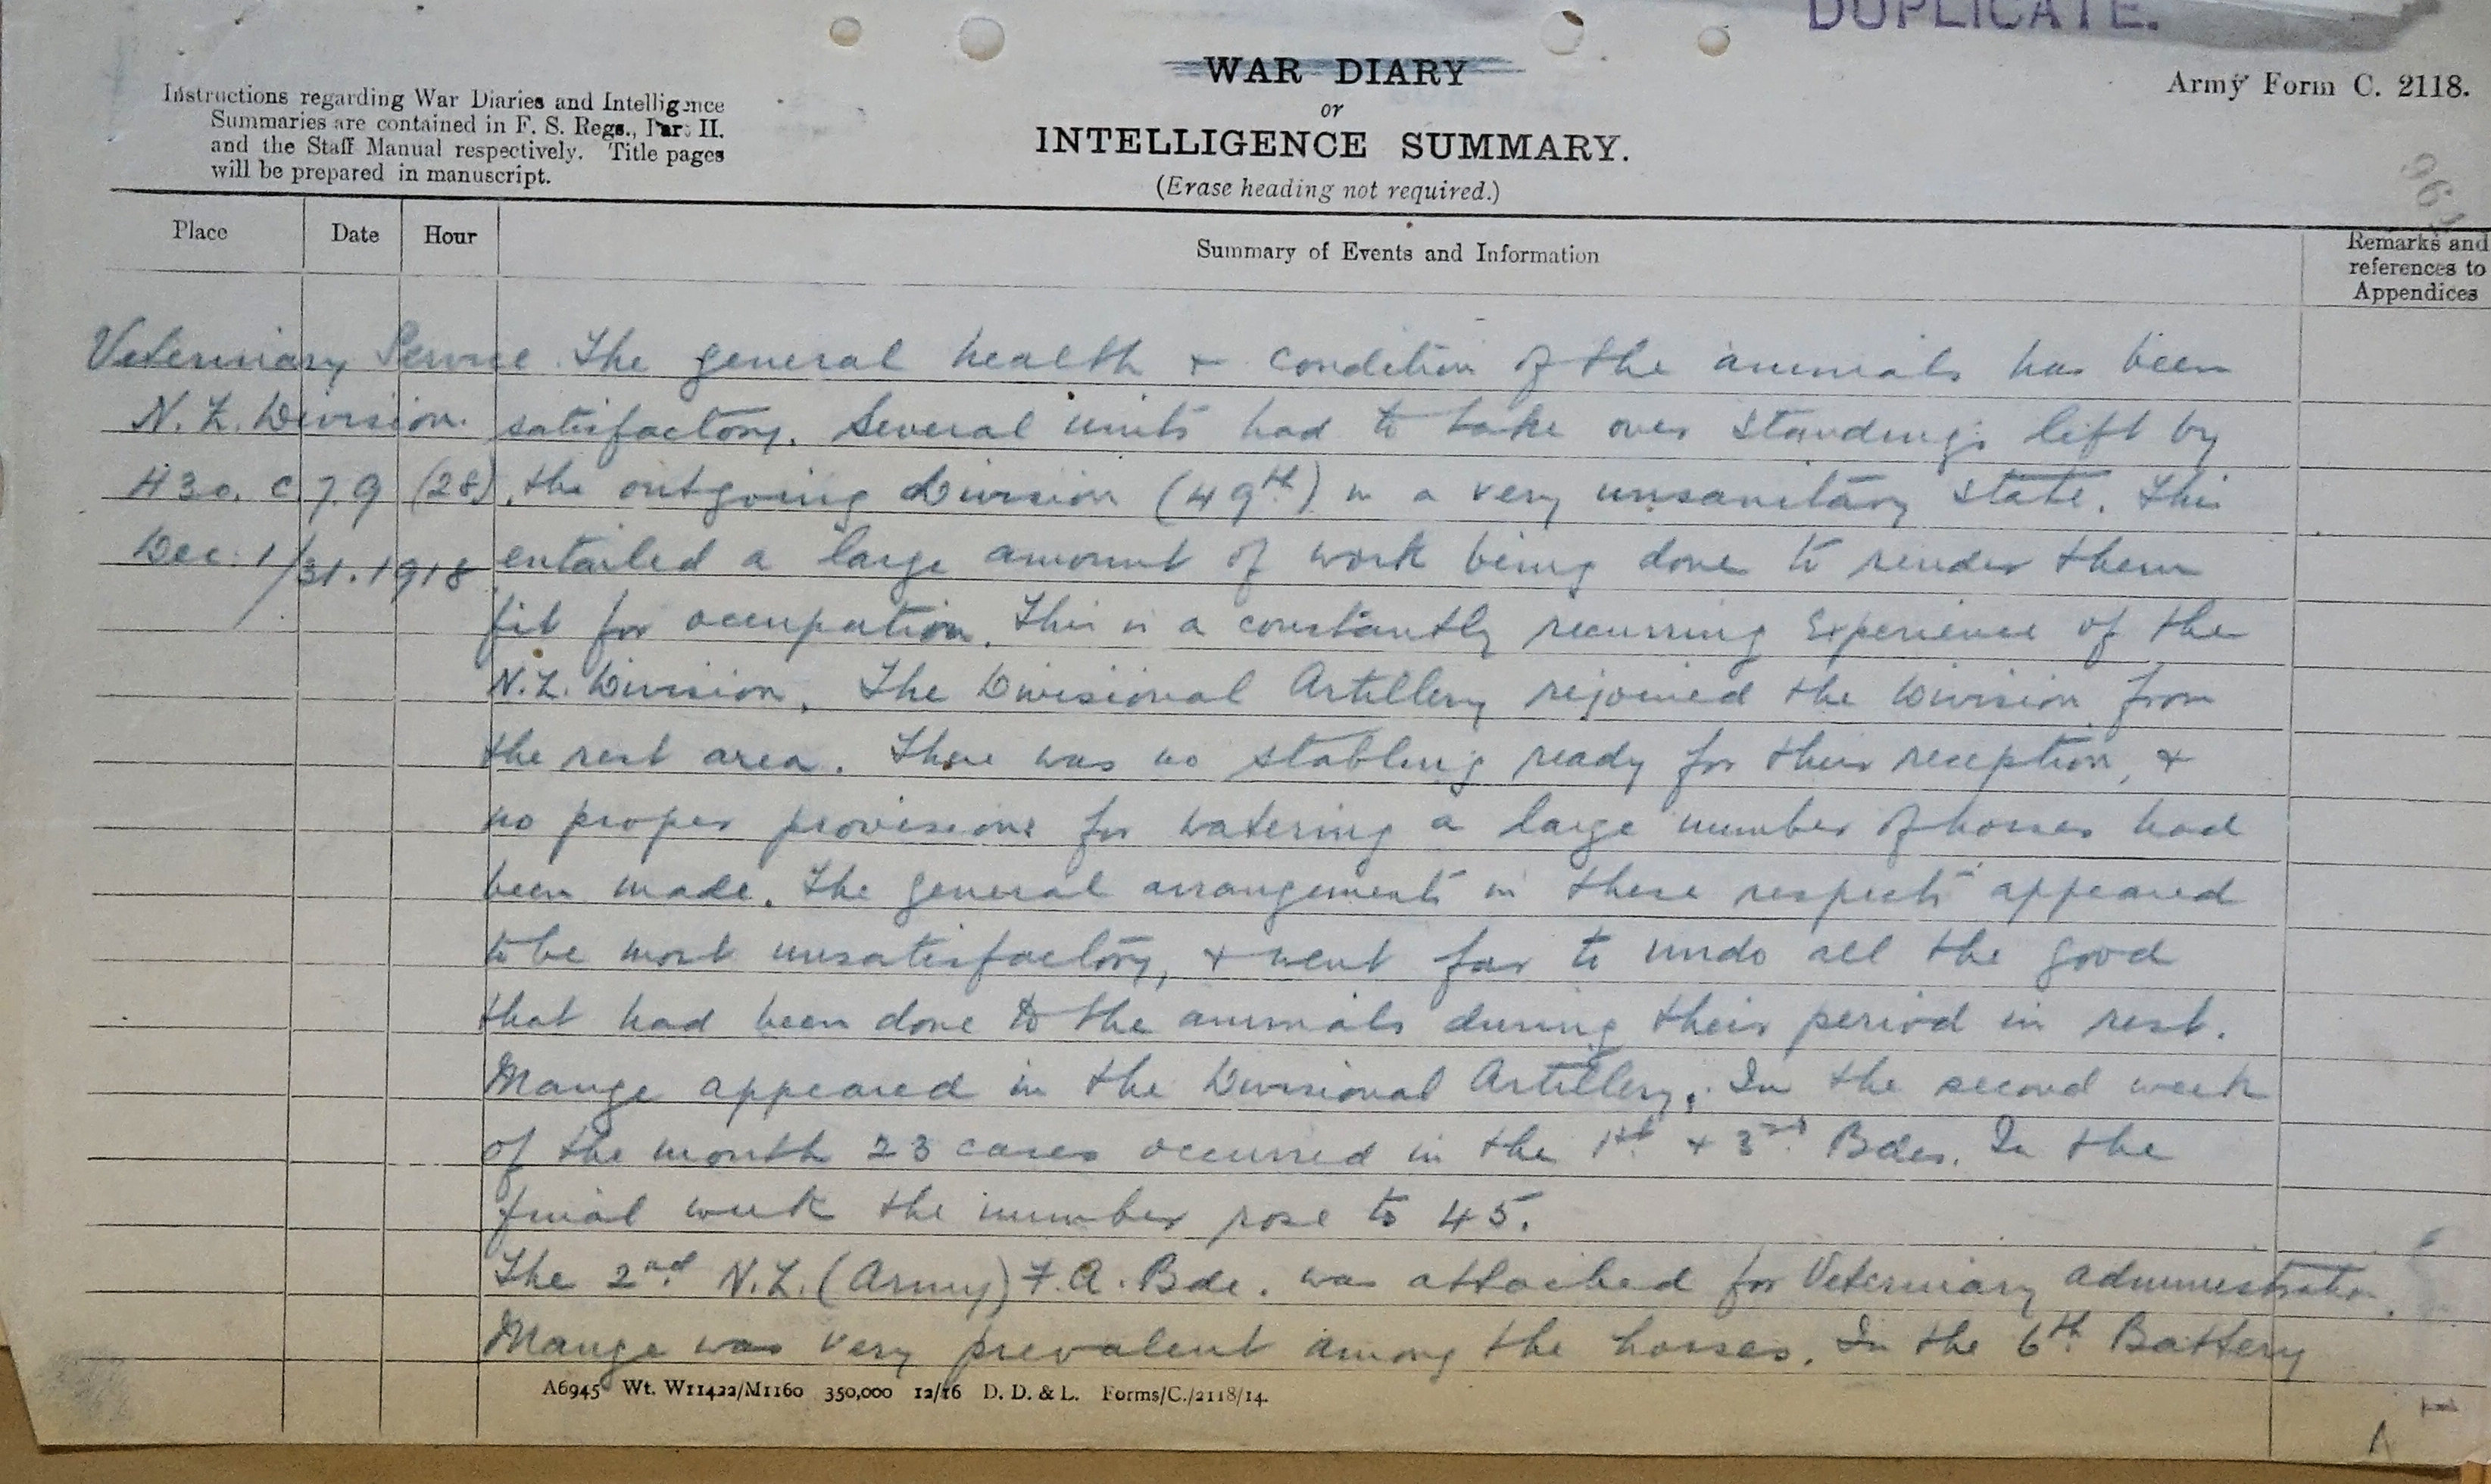 DUPLICATE.
WAR DIARY
or
INTELLIGENCE SUMMARY.
(Erase heading not required.)
Army Form C. 2118.
Instructions regarding War Diaries and Intelligence
Summaries are contained in F. S. Regs., Part II.
and the Staff Manual respectively. Title pages
will be prepared in manuscript.
Place Date Hour Summary of Events and Information Remarks and
references to
Appendices
Veterinary Service The general health + condition of the animals has been
N.Z. Division. satisfactory. Several units had to take over standings left by
H30. c 7.9 (28). the outgoing Division (49th) in a very unsanitary state. This
Dec: 1/31.1918 entailed a large amount of work being done to render them
fit for occupation. This is a constantly recurring experience of the
N.Z. Division. The Divisional Artillery rejoined the Division from
the rest area. There was no stabling ready for their reception, +
no proper provisions for watering a large number of horses had
been made. The general arrangements in these respects appeared
to be most unsatisfactory, + went far to undo all the good
that had been done to the animals during their period in rest.
Mange appeared in the Divisional Artillery. In the second week
of the month 23 cases occurred in the 1st + 3rd Bdes. In the
final week the number rose to 45.
The 2nd N.Z. (Army) F.A. Bde. was attached for Veterinary administration.
Mange was very prevalent among the horses. In the 6th Battery
A6945 Wt. W11422/M1160 350,000 12/16 D. D. & L. Forms/C./2118/14.